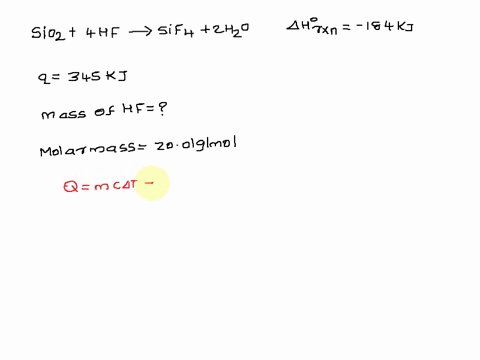 SiO₂ + 4HF → SiF₄ + 2H₂O ΔH°rxn = -184 KJ
q = 345 KJ
mass of HF = ?
Molarmass = 20.01g/mol
Q = mcΔT -